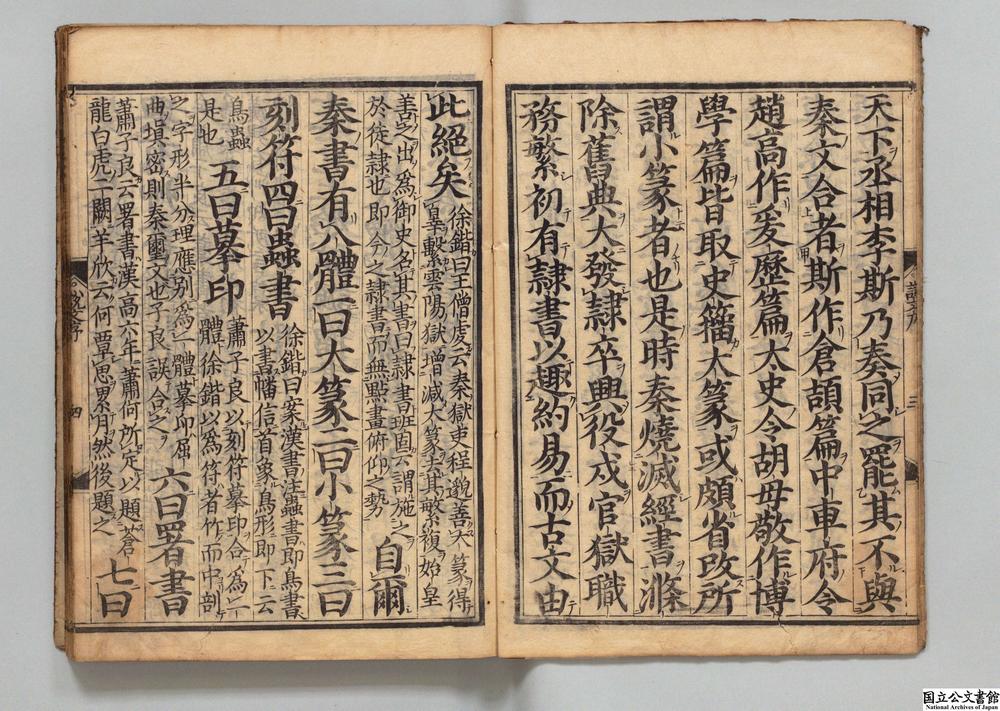 天下丞相李斯乃奏同之罷其不與
秦文合者斯作倉頡篇中車府令
趙高作爰歷篇太史令胡毋敬作博
學篇皆取史籒大篆或頗省改所
謂小篆者也是時秦燒滅經書滌
除舊典大發隷卒興役戍官獄職
務繁初有隷書以趣約易而古文由
說文序
三
此絕矣
徐鍇曰王僧虔云秦獄吏程邈善大篆得
辠繫雲陽獄增減大篆去其繁複始皇
善之出爲御史名其書曰隷書班固云謂施之
於徒隷也即今之隷書而無點畫俯仰之勢
自爾
秦書有八體一曰大篆二曰小篆三曰
刻符四曰蟲書
徐鍇曰案漢書注蟲書即鳥書
以書幡信首象鳥形即下云
鳥蟲
是也
五曰摹印
蕭子良以刻符摹印合爲一
體徐鍇以爲符者竹而中剖
之字形半分理應別爲一體摹印屈
曲填密則秦璽文也子良誤合之
六曰署書
蕭子良云署書漢高六年蕭何所定以題蒼
龍白虎二闕羊欣云何覃思累月然後題之
七曰
四
国立公文書館
National Archives of Japan